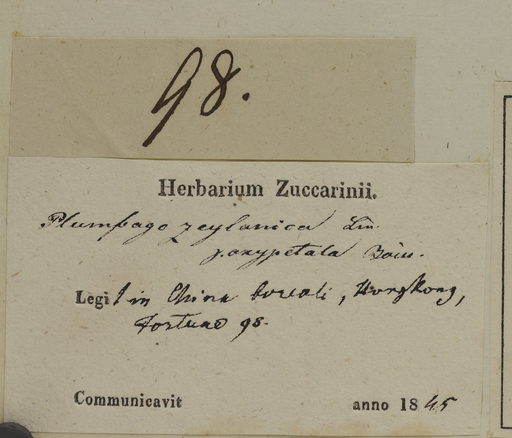 98.
Herbarium Zuccarinii.
Plumbago zeylanica Lin.
γ. oxypetala Boiss.
Legit in China boreali, Hongkong,
Fortune 98.
Communicavit anno 1845